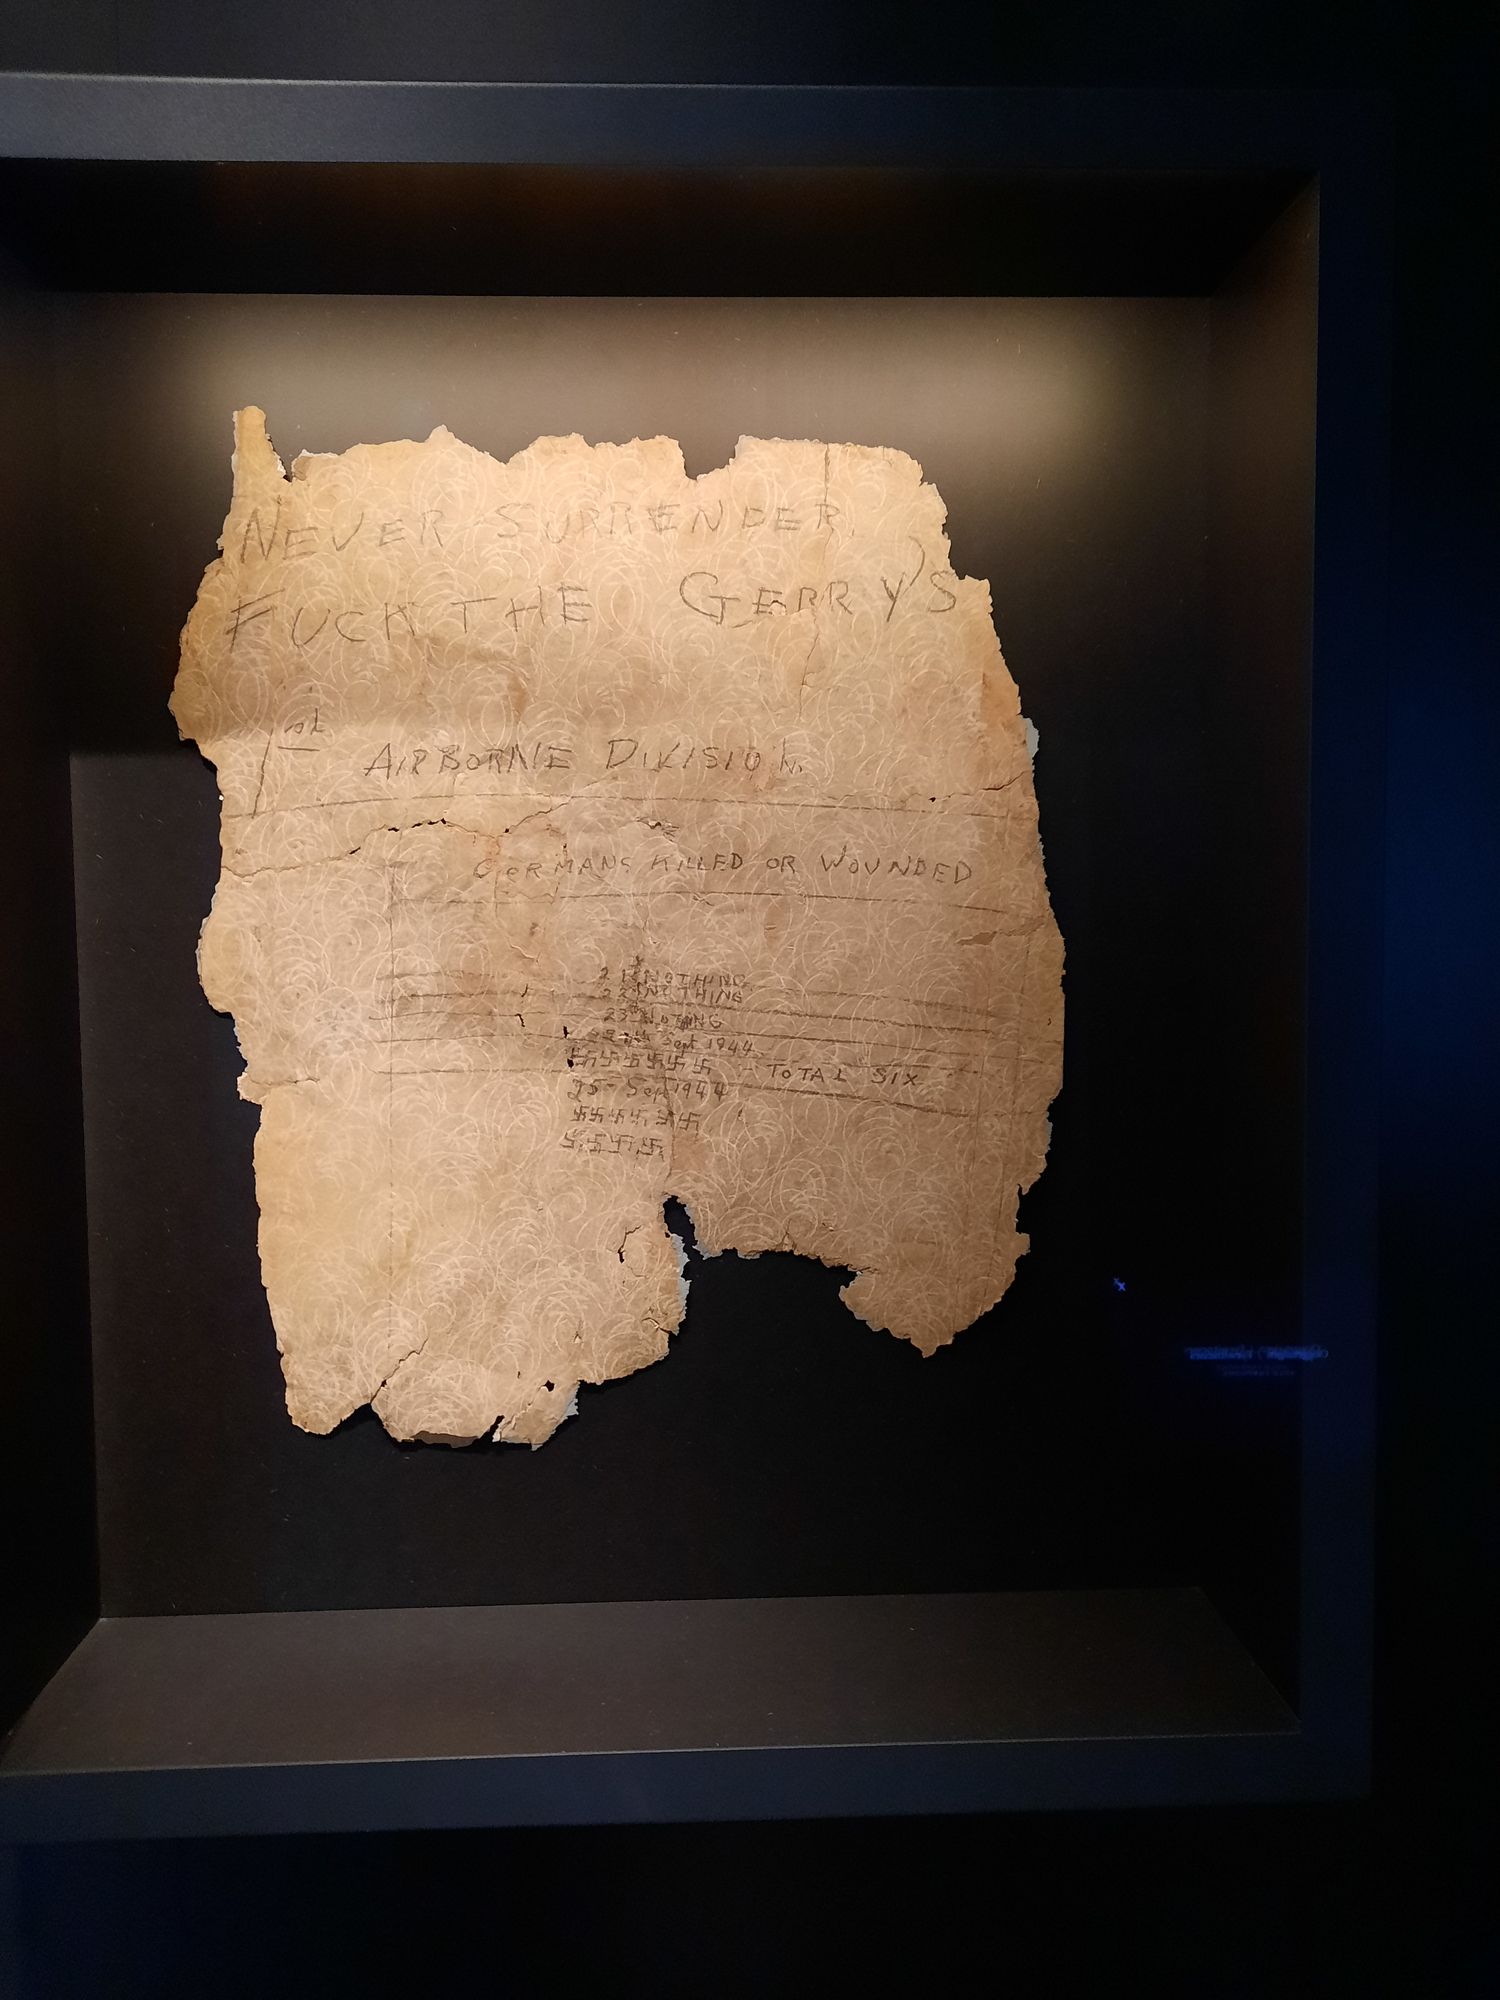 NEVER SURRENDER.
FUCK THE GERRY'S
1st AIRBORNE DIVISION.
GERMANS KILLED OR WOUNDED
21 NOTHING
22 NOTHING
23 NOTHING
Sept 1944
卐卐卐卐卐卐 - TOTAL SIX
25 - Sept 1944
卐卐卐卐卐卐
卐卐卐卐